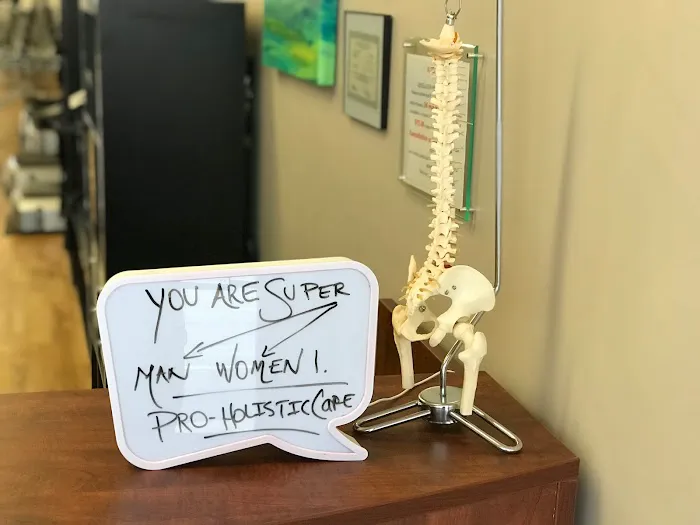 YOU ARE SUPER
MAN WOMEN !.
PRO-HOLISTIC CARE